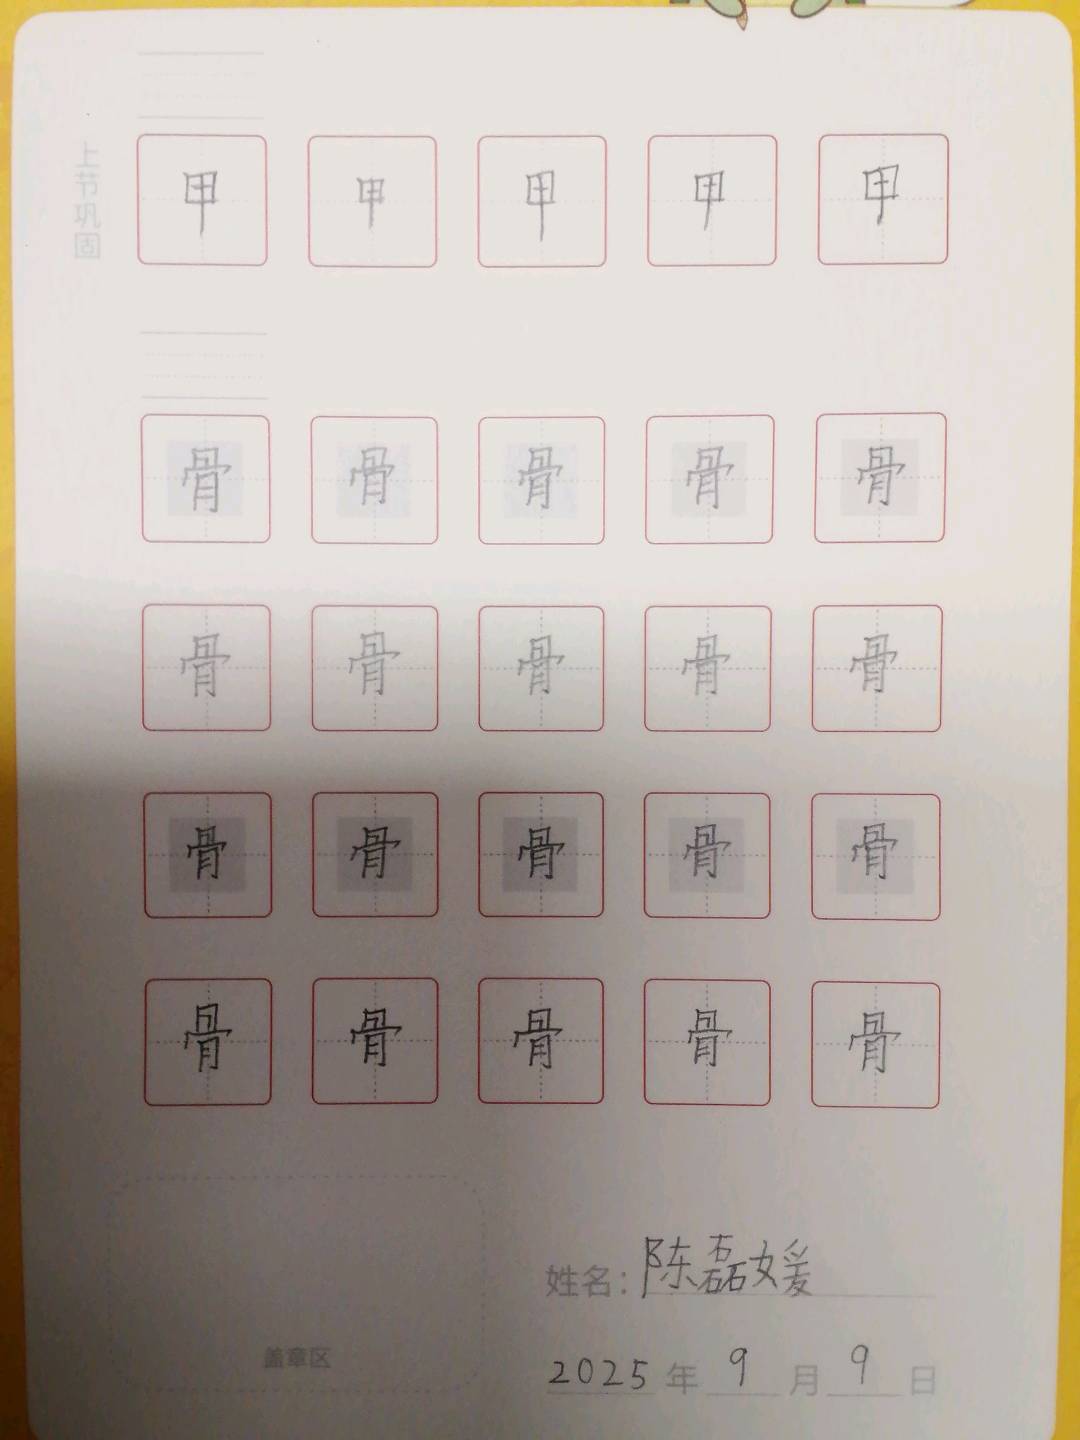 上节巩固
甲 甲 甲 甲 甲
骨 骨 骨 骨 骨
骨 骨 骨 骨 骨
骨 骨 骨 骨 骨
骨 骨 骨 骨 骨
姓名：陈磊媛
盖章区
2025年9月9日